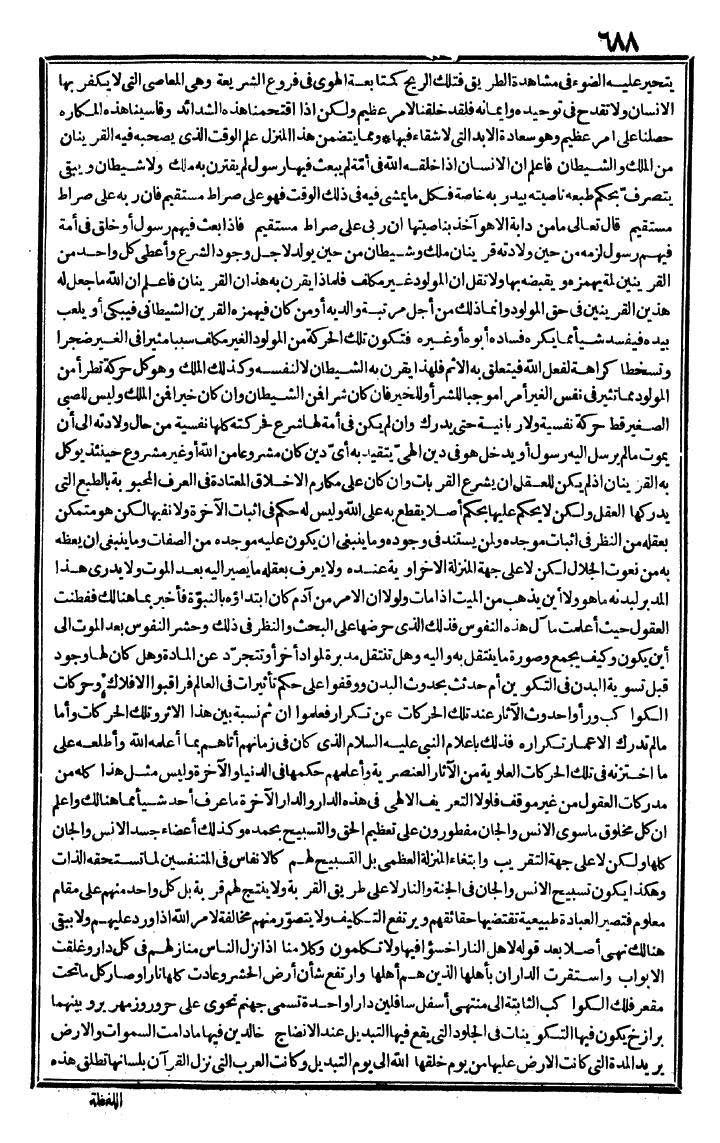 ٦٨٨
يتحير عليه الضوء فى مشاهدة الطريق فتلك الريح كمتابعة الهوى فى فروع الشريعة وهى المعاصى التى لا يكفر بها
الانسان ولا تقدح فى توحيده وايمانه فلقد خلقنا لامر عظيم ولكن اذا اقتحمنا هذه الشدائد وقاسينا هذه المكاره
حصلنا على امر عظيم وهو سعادة الابد التى لا شقاء فيها * ومما يتضمن هذا المنزل علم الوقت الذى يصحبه فيه القرينان
من الملك والشيطان فاعلم ان الانسان اذا خلقه الله فى أمّة لم يبعث فيها رسول لم يقترن به ملك ولا شيطان ويبقى
يتصرف بحكم طبعه ناصيته بيد ربه خاصة فكل ما يمشى فيه فى ذلك الوقت فهو على صراط مستقيم فان ربه على صراط
مستقيم قال تعالى ما من دابة الا هو آخذ بناصيتها ان ربى على صراط مستقيم فاذا بعث فيهم رسول أو خلق فى أمة
فيهم رسول لزمه من حين ولادته قرينان ملك وشيطان من حين يولد لاجل وجود الشرع وأعطى كل واحد من
القرينين لمة يهمزه ويقبضه بها ولا تقل ان المولود غير مكلف فلماذا يقرن به هذان القرينان فاعلم ان الله ما جعل له
هذين القرينين فى حق المولود وانما ذلك من أجل مرتبة والديه أو من كان فيهمزه القرين الشيطانى فيبكى أو يلعب
بيده فيفسد شيأ مما يكره فساده أبوه أو غيره فتكون تلك الحركة من المولود الغير مكلف سببا مثيرا فى الغير ضجرا
وتسخطا كراهة لفعل الله فيتعلق به الاثم فلهذا يقرن به الشيطان لا لنفسه وكذلك الملك وهو كل حركة تطرأ من
المولود مما تثير فى نفس الغير أمرا موجبا للشر أو للخير فان كان شرا فن الشيطان وان كان خيرا فن الملك وليس للصبى
الصغير قط حركة نفسية ولا ربانية حتى يدرك وان لم يكن فى أمة لها شرع فحركته كلها نفسية من حال ولادته الى أن
يموت ما لم يرسل اليه رسول أو يدخل هو فى دين الهى يتقيد به أىّ دين كان مشروعا من الله أو غير مشروع حينئذ يوكل
به القرينان اذ لم يكن للعقل ان يشرع القربات وان كان على مكارم الاخلاق المعتادة فى العرف المحبوبة بالطبع التى
يدركها العقل ولكن لا يحكم عليها بحكم أصلا يقطع به على الله وليس له حكم فى اثبات الآخرة ولا نفيها لكن هو متمكن
بعقله من النظر فى اثبات موجده ولمن يستند فى وجوده وما ينبغى ان يكون عليه موجده من الصفات وما ينبغى ان يعظه
به من نعوت الجلال لكن لا على جهة المنزلة الاخراوية عنده ولا يعرف بعقله ما يصير اليه بعد الموت ولا يدرى هذا
المدبر لبدنه ما هو ولا أين يذهب من الميت اذا مات ولولا ان الامر من آدم كان ابتداؤه بالنبوّة فأخبر بما هنالك ففطنت
العقول حيث أعلمت مآل هذه النفوس فذلك الذى حرضها على البحث والنظر فى ذلك وحشر النفوس بعد الموت الى
أين يكون وكيف يجمع وصورة ما ينتقل به واليه وهل تنتقل مدبرة لمواد أخر أو تتجرّد عن المادة وهل كان لها وجود
قبل تسوية البدن فى التكوين أم حدثت بحدوث البدن ووقفوا على حكم تأثيرات فى العالم فراقبوا الافلاك وحركات
الكواكب ورأوا حدوث الآثار عند تلك الحركات عن تكرار فعلموا ان ثم نسبة بين هذا الاثر وتلك الحركات وأما
ما لم تدرك الاعمار تكراره فذلك باعلام النبى عليه السلام الذى كان فى زمانهم أتاهم بما أعلمه الله وأطلعه على
ما اختزنه فى تلك الحركات العلوية من الآثار العنصرية وأعلمهم حكمها فى الدنيا والآخرة وليس مثل هذا كله من
مدركات العقول من غير موقف فلولا التعريف الالهى فى هذه الدار والدار الآخرة ما عرف أحد شيأ مما هنالك واعلم
ان كل مخلوق ما سوى الانس والجان مفطورون على تعظيم الحق والتسبيح بحمده وكذلك أعضاء جسد الانس والجان
كلها ولكن لا على جهة التقريب وابتغاء المنزلة العظمى بل التسبيح لهم كالانفاس فى المتنفسين لما تستحقه الذات
وهكذا يكون تسبيح الانس والجان فى الجنة والنار لا على طريق القربة ولا ينتج لهم قربة بل كل واحد منهم على مقام
معلوم فتصير العبادة طبيعية تقتضيها حقائقهم ويرتفع التكليف ولا يتصوّر منهم مخالفة لامر الله اذا ورد عليهم ولا يبقى
هنالك نهى أصلا بعد قوله لاهل النار اخسؤا فيها ولا تكلمون وكلامنا اذا نزل الناس منازلهم فى كل دار وغلقت
الابواب واستقرت الداران بأهلها الذين هم أهلها وارتفع شأن أرض الحشر وعادت كلها نارا وصار كل ما تحت
مقعر فلك الكواكب الثابتة الى منتهى أسفل سافلين دارا واحدة تسمى جهنم تحوى على حرور وزمهرير وبينهما
برازخ يكون فيها التكوينات فى الجلود التى يقع فيها التبديل عند الانضاج خالدين فيها ما دامت السموات والارض
يريد المدة التى كانت الارض عليها من يوم خلقها الله الى يوم التبديل وكانت العرب التى نزل القرآن بلسانها تطلق هذه
اللفظة